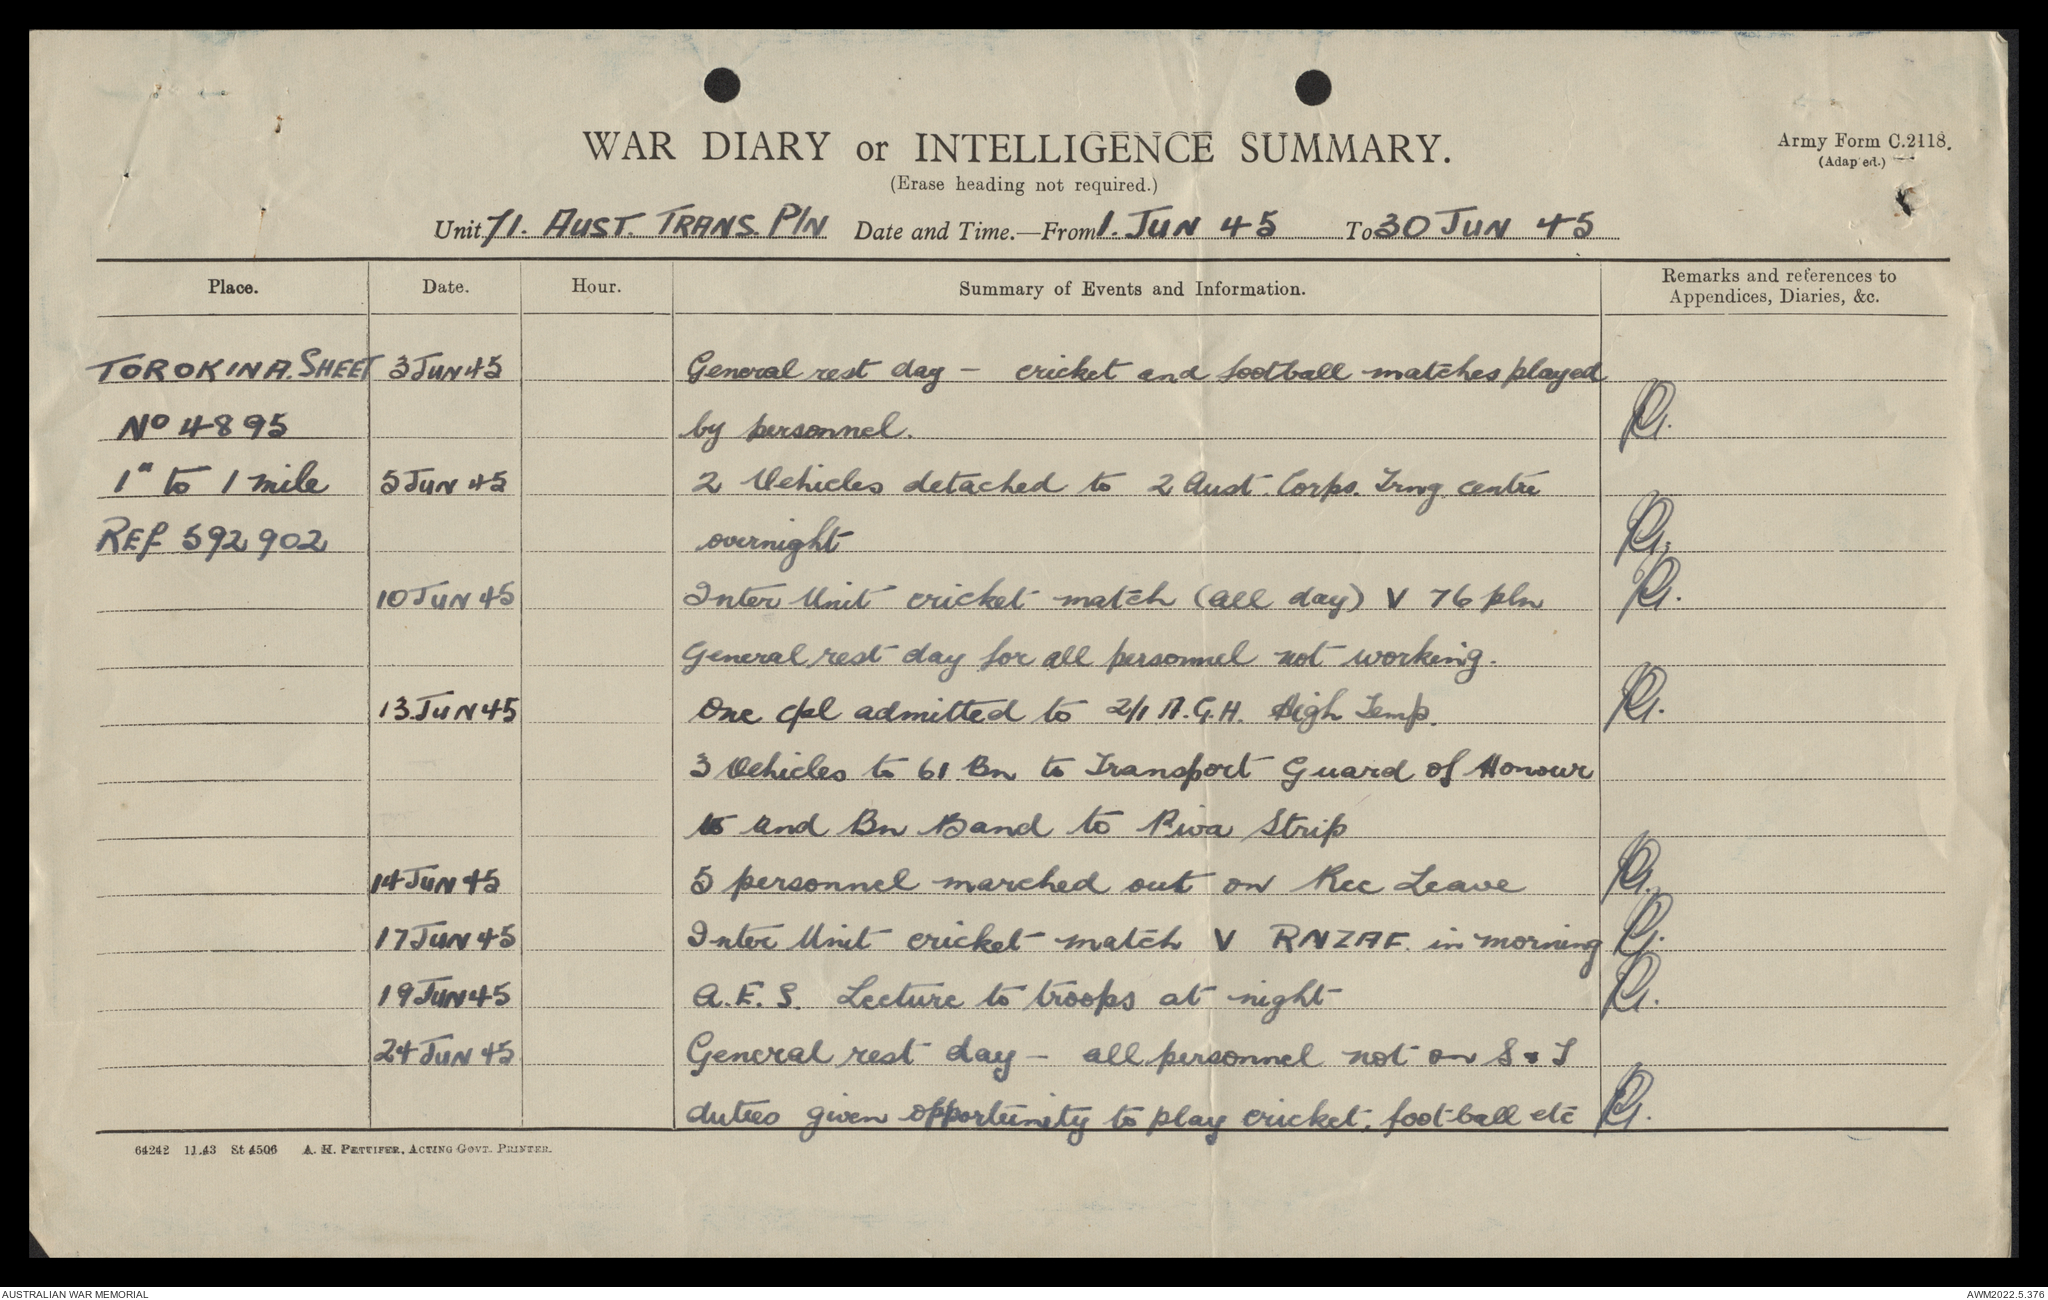 WAR DIARY or INTELLIGENCE SUMMARY.
Army Form C.2118.
(Adap ed.)
(Erase heading not required.)
Unit 71. AUST. TRANS. P/N Date and Time.—From 1. JUN 45 To 30 JUN 45
Place. Date. Hour. Summary of Events and Information. Remarks and references to
Appendices, Diaries, &c.
TOROKINA. SHEET 3 JUN 45 General rest day – cricket and football matches played
No 4895 by personnel.
1" to 1 mile 5 JUN 45 2 Vehicles detached to 2 Aust. Corps. Trng. centre
REf 592902 overnight
10 JUN 45 Inter Unit cricket match (all day) V 76 pln
General rest day for all personnel not working.
13 JUN 45 One cpl admitted to 2/1 A.G.H. High Temp.
3 Vehicles to 61 Bn to Transport Guard of Honour
and Bn Band to Piva Strip
14 JUN 45 5 personnel marched out on Rec Leave
17 JUN 45 Inter Unit cricket match V RNZAF. in morning
19 JUN 45 A.E.S. Lecture to troops at night
24 JUN 45 General rest day – all personnel not on S & T
duties given opportunity to play cricket, football etc
64242 11.43 St 4506 A. H. PETTIFER, ACTING GOVT. PRINTER.
AUSTRALIAN WAR MEMORIAL
AWM2022.5.376